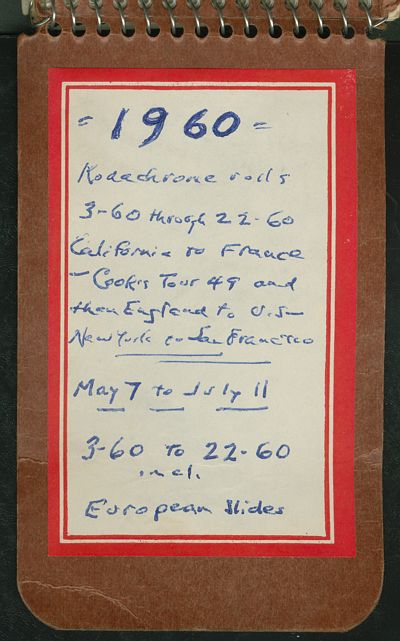 = 1960 =
Kodachrome rolls
3-60 through 22-60
California to France
- Cooks Tour 49 and
then England to U.S-
New York to San Francisco
May 7 to July 11
3-60 to 22-60
incl.
European Slides